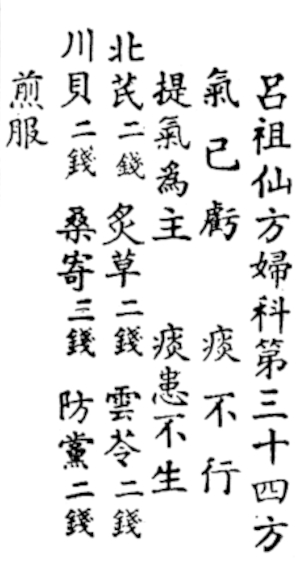 呂祖仙方婦科第三十四方
氣已虧　痰不行
提氣為主　痰患不生
北芪二錢　炙草二錢　雲苓二錢
川貝二錢　桑寄三錢　防黨二錢
煎服